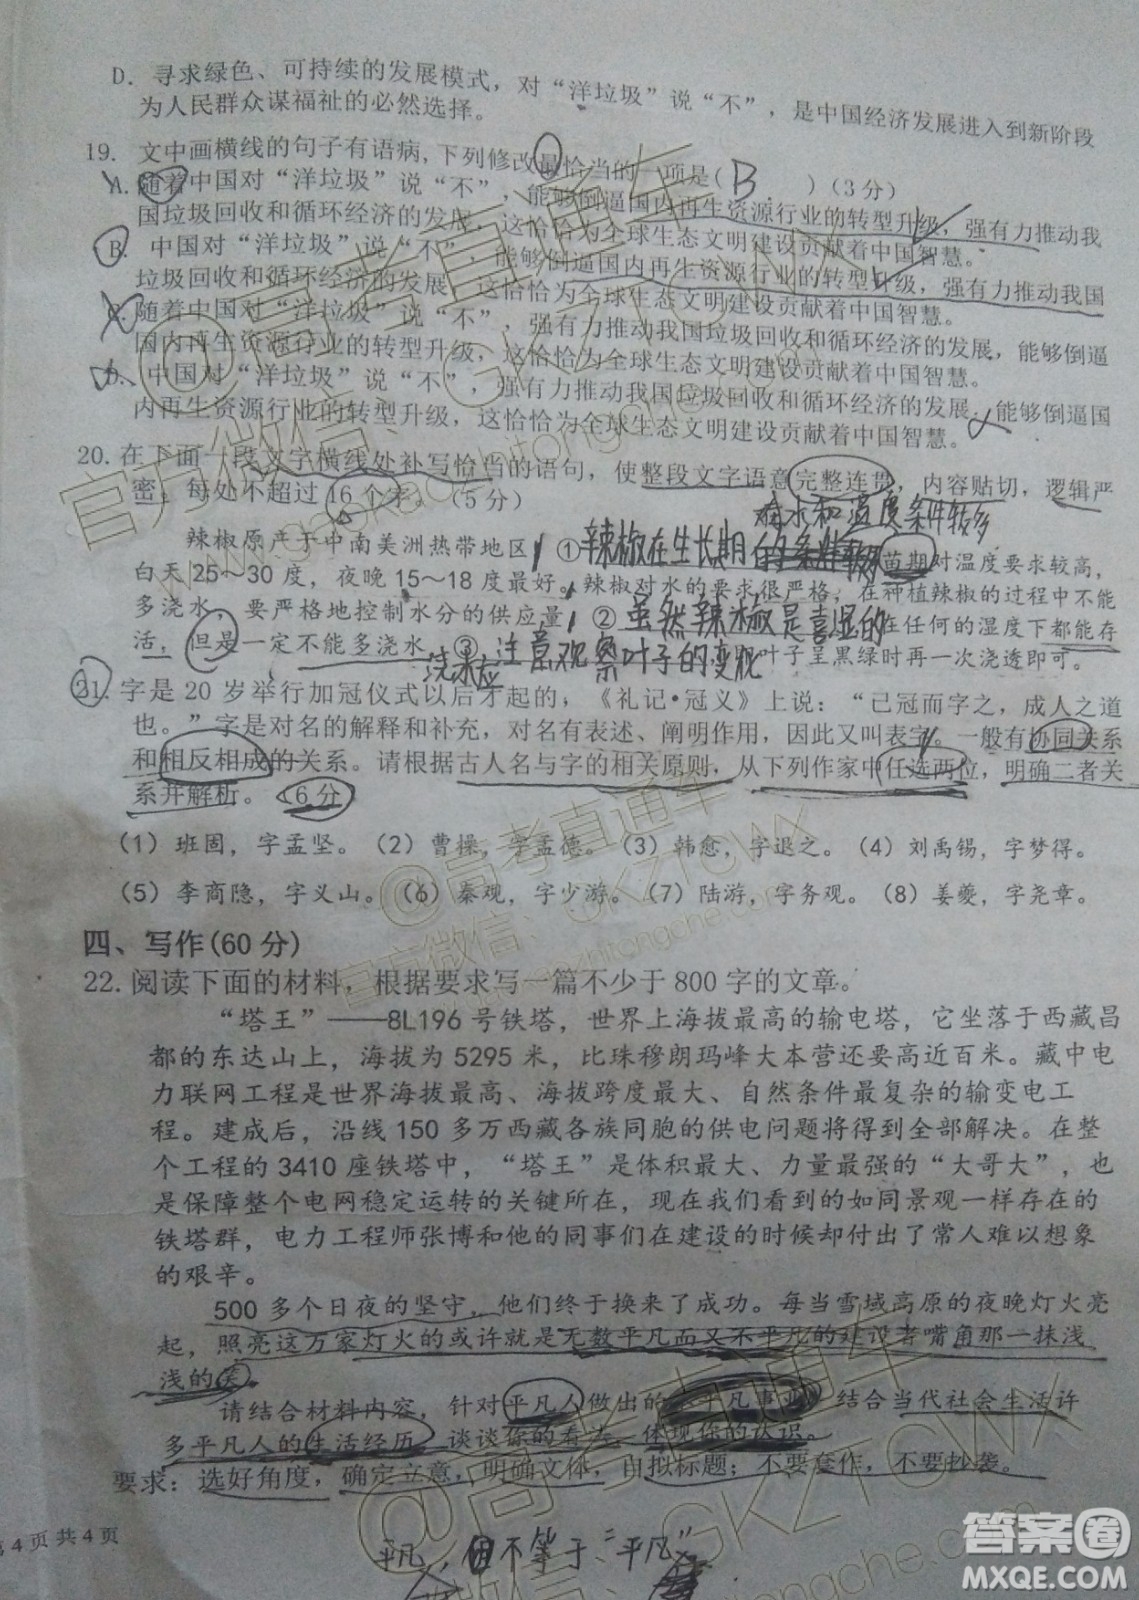 D. 寻求绿色、可持续的发展模式，对“洋垃圾”说“不”，是中国经济发展进入到新阶段
为人民群众谋福祉的必然选择。
19. 文中画横线的句子有语病,下列修改最恰当的一项是( B )(3分)
A. 随着中国对“洋垃圾”说“不”，能够倒逼国内再生资源行业的转型升级，强有力推动我
国垃圾回收和循环经济的发展，这恰恰为全球生态文明建设贡献着中国智慧。
B. 中国对“洋垃圾”说“不”，能够倒逼国内再生资源行业的转型升级，强有力推动我国
垃圾回收和循环经济的发展，这恰恰为全球生态文明建设贡献着中国智慧。
C. 随着中国对“洋垃圾”说“不”，强有力推动我国垃圾回收和循环经济的发展，能够倒逼
国内再生资源行业的转型升级，这恰恰为全球生态文明建设贡献着中国智慧。
D. 中国对“洋垃圾”说“不”，强有力推动我国垃圾回收和循环经济的发展，能够倒逼国
内再生资源行业的转型升级，这恰恰为全球生态文明建设贡献着中国智慧。
20. 在下面一段文字横线处补写恰当的语句，使整段文字语意完整连贯，内容贴切，逻辑严
密，每处不超过16个字。(5分)
对水和温度条件较多
辣椒原产于中南美洲热带地区，①辣椒在生长期 苗期对温度要求较高，
白天25～30度，夜晚15～18度最好。辣椒对水的要求很严格，在种植辣椒的过程中不能
多浇水，要严格地控制水分的供应量，②虽然辣椒是喜湿的 在任何的湿度下都能存
活，但是一定不能多浇水，③ 浇水应注意观察叶子的变现 叶子呈黑绿时再一次浇透即可。
21. 字是20岁举行加冠仪式以后才起的，《礼记·冠义》上说：“己冠而字之，成人之道
也。”字是对名的解释和补充，对名有表述、阐明作用，因此又叫表字。一般有协同关系
和相反相成的关系。请根据古人名与字的相关原则，从下列作家中任选两位，明确二者关
系并解析。(6分)
(1) 班固，字孟坚。(2) 曹操，字孟德。(3) 韩愈，字退之。(4) 刘禹锡，字梦得。
(5) 李商隐，字义山。(6) 秦观，字少游。(7) 陆游，字务观。(8) 姜夔，字尧章。
四、写作(60分)
22. 阅读下面的材料，根据要求写一篇不少于800字的文章。
“塔王”——8L196号铁塔，世界上海拔最高的输电塔，它坐落于西藏昌
都的东达山上，海拔为5295米，比珠穆朗玛峰大本营还要高近百米。藏中电
力联网工程是世界海拔最高、海拔跨度最大、自然条件最复杂的输变电工
程。建成后，沿线150多万西藏各族同胞的供电问题将得到全部解决。在整
个工程的3410座铁塔中，“塔王”是体积最大、力量最强的“大哥大”，也
是保障整个电网稳定运转的关键所在，现在我们看到的如同景观一样存在的
铁塔群，电力工程师张博和他的同事们在建设的时候却付出了常人难以想象
的艰辛。
500多个日夜的坚守，他们终于换来了成功。每当雪域高原的夜晚灯火亮
起，照亮这万家灯火的或许就是无数平凡而又不平凡的建设者嘴角那一抹浅
浅的笑。
请结合材料内容，针对平凡人做出的不平凡事业，结合当代社会生活许
多平凡人的生活经历，谈谈你的看法，体现你的认识。
要求：选好角度，确定立意，明确文体，自拟标题；不要套作，不要抄袭。
第4页共4页
平凡，但不等于“平凡”
@高考直通车
官方微信：GKZTCWX
www.gaokaozhitongche.com
@高考直通车
官方微信：GKZTCWX
@高考直通车
GKZTCWX
答案圈
MXQE.COM